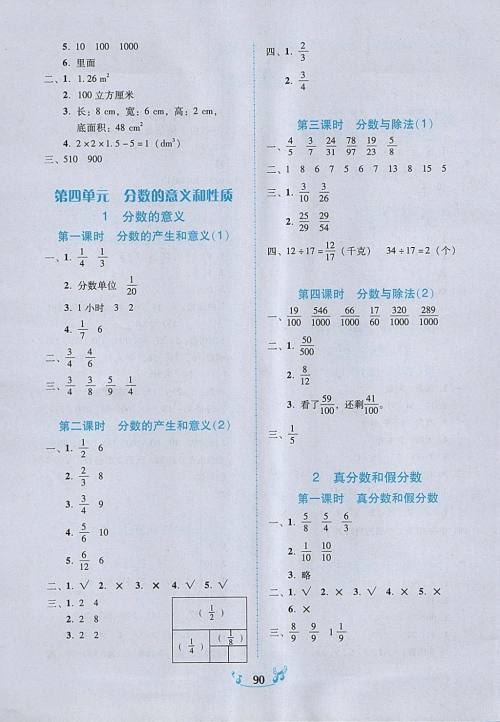 5. 10 100 1000
6. 里面
二、1. 1.26 m²
2. 100 立方厘米
3. 长:8 cm,宽:6 cm,高:2 cm,
底面积:48 cm²
4. 2×2×1.5-5=1 (dm³)
三、510 900
第四单元 分数的意义和性质
1 分数的意义
第一课时 分数的产生和意义(1)
一、1. 1/4 1/3
2. 分数单位 1/20
3. 1小时 3 2
4. 1/7 6
二、3/4 4/6
三、3/4 3/8 5/9 1/4
第二课时 分数的产生和意义(2)
一、1. 1/2 6
2. 2/3 8
3. 3/4 9
4. 5/6 10
5. 6/12 6
二、1. √ 2. × 3. × 4. √ 5. √
三、1. 2 4
2. 2 8
3. 2 2
(1/2)
(1/4)
(1/8)
四、1. 2/3
2. 3/4
第三课时 分数与除法(1)
一、4/5 3/7 24/31 78/95 19/23 5/8
二、1 8 7 5 6 7 13 8 15 5
三、1. 3/10 3/26
2. 25/29 29/54
四、12÷17=12/17(千克) 34÷17=2(个)
第四课时 分数与除法(2)
一、19/100 546/1000 66/100 17/60 320/1000 289/1000
二、1. 50/500
2. 8/12
3. 看了59/100,还剩41/100。
三、1/5
2 真分数和假分数
第一课时 真分数和假分数
一、1. 5/8 5/4 6/3
2. 1/10 10/10
3. 略
二、1. √ 2. × 3. × 4. √ 5. √
6. ×
三、8/9 9/9 1 1/9
90